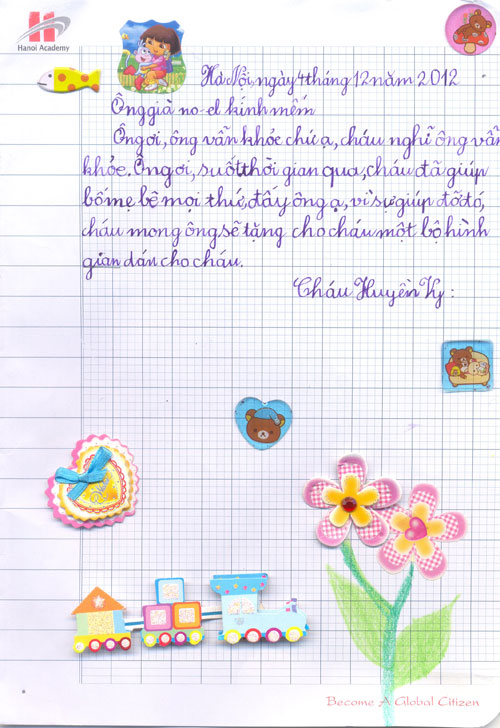 Hanoi Academy
Hà Nội, ngày 4 tháng 12 năm 2012
Ông già no-el kính mếm
Ông ơi, ông vẫn khỏe chứ ạ, cháu nghĩ ông vẫn
khỏe. Ông ơi, suốt thời gian qua, cháu đã giúp
bố mẹ bê mọi thứ, đấy ông ạ, vì sự giúp đỡ đó,
cháu mong ông sẽ tặng cho cháu một bộ hình
gian dán cho cháu.
Cháu Huyền Vy:
Become A Global Citizen